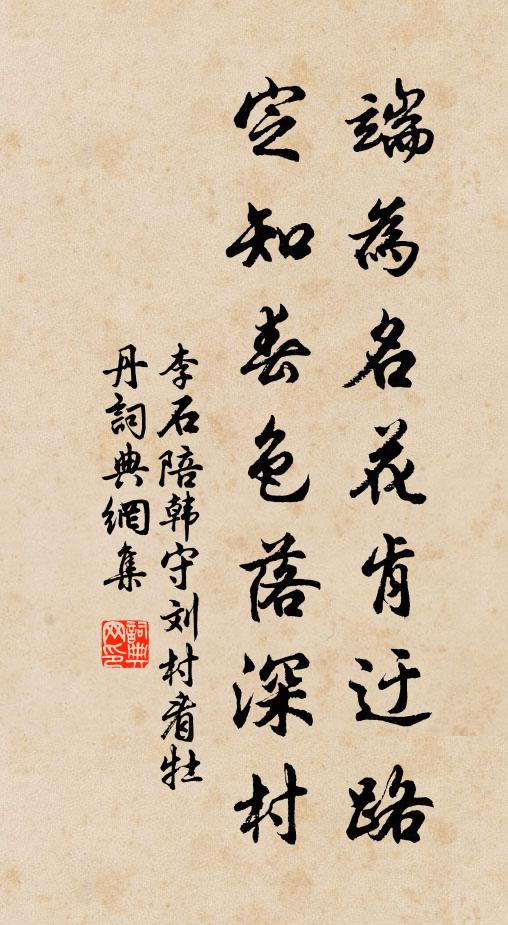 端為名花肯迂路
定知春色落深村
李石陪韩守刘村看牡
丹詞典網集
詞典
网印